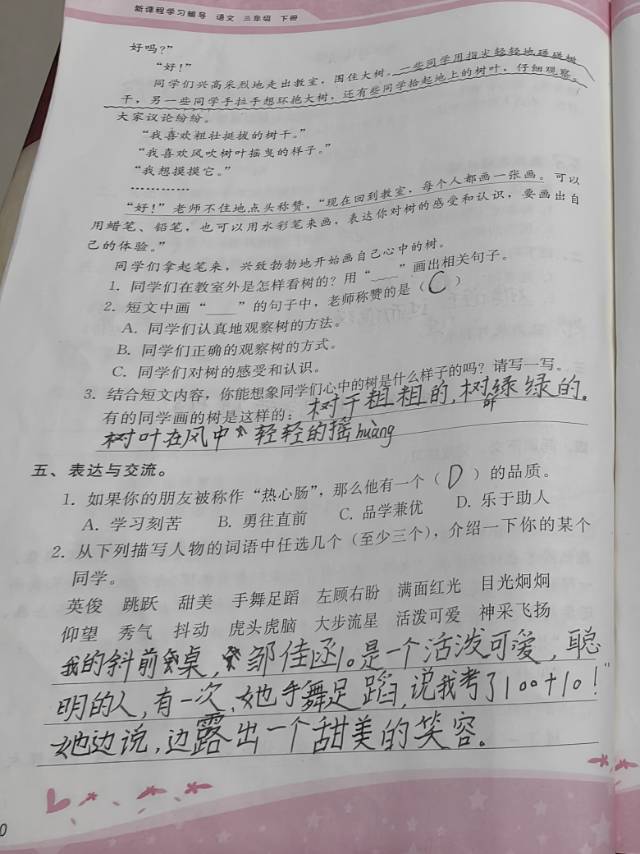 新课程学习辅导 语文 三年级 下册
好吗？”
“好！”
同学们兴高采烈地走出教室，围住大树。一些同学用指尖轻轻地碰碰树
干，另一些同学手拉手想环抱大树，还有些同学拾起地上的树叶，仔细观察。
大家议论纷纷。
“我喜欢粗壮挺拔的树干。”
“我喜欢风吹树叶摇曳的样子。”
“我想摸摸它。”
…………
“好！”老师不住地点头称赞，“现在回到教室，每个人都画一张画。可以
用蜡笔、铅笔，也可以用水彩笔来画，表达你对树的感受和认识，要画出自
己的体验。”
同学们拿起笔来，兴致勃勃地开始画自己心中的树。
1. 同学们在教室外是怎样看树的？用“____”画出相关句子。
2. 短文中画“____”的句子中，老师称赞的是（C）
A. 同学们认真地观察树的方法。
B. 同学们正确的观察树的方式。
C. 同学们对树的感受和认识。
3. 结合短文内容，你能想象同学们心中的树是什么样子的吗？请写一写。
有的同学画的树是这样的：树干粗粗的，树叶绿绿的。
树叶在风中轻轻的摇huàng
五、表达与交流。
1. 如果你的朋友被称作“热心肠”，那么他有一个（D）的品质。
A. 学习刻苦 B. 勇往直前 C. 品学兼优 D. 乐于助人
2. 从下列描写人物的词语中任选几个（至少三个），介绍一下你的某个
同学。
英俊 跳跃 甜美 手舞足蹈 左顾右盼 满面红光 目光炯炯
仰望 秀气 抖动 虎头虎脑 大步流星 活泼可爱 神采飞扬
我的斜前桌，邹佳函。是一个活泼可爱，聪
明的人，有一次，她手舞足蹈，说我考了100+10！”
她边说，边露出一个甜美的笑容。
0